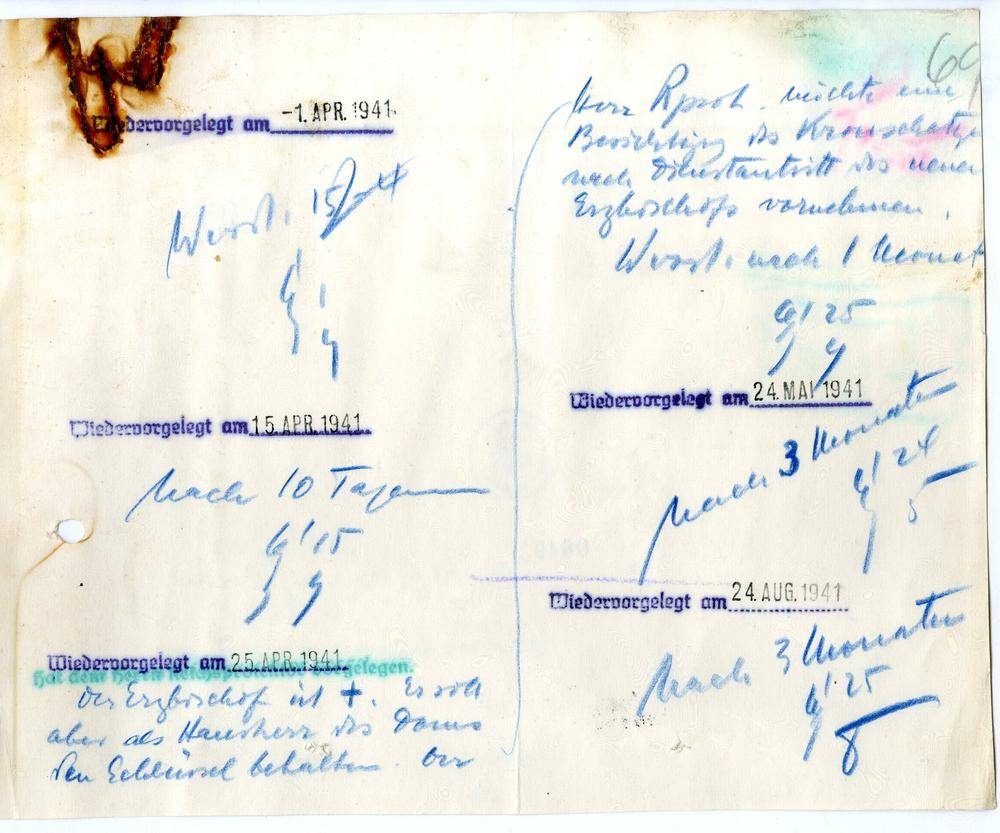 Wiedervorgelegt am -1. APR. 1941
Wvorl. 15/4
G 1
4
Wiedervorgelegt am 15. APR. 1941
Nach 10 Tagen
G 15
4
Wiedervorgelegt am 25. APR. 1941
Hat dem Herrn Reichsprotektor vorgelegen.
Der Erzbischof ist +. Er soll
aber als Hausherr des Doms
den Schlüssel behalten. Der
69
Herr Rprot. möchte eine
Besichtigung des Kronschatzes
nach Dienstantritt des neuen
Erzbischofs vornehmen.
Wvorl. nach 1 Monat
G 25
4
Wiedervorgelegt am 24. MAI 1941
Nach 3 Monaten
G 24
5
Wiedervorgelegt am 24. AUG. 1941
Nach 3 Monaten
G 25
8